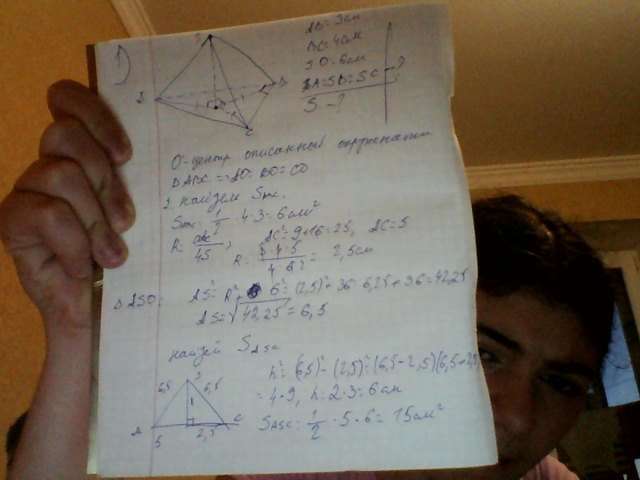 1)
AB = 3см
BC = 4см
SO = 6см
SA=SB=SC
S - ?
O - центр описанной окружности
ΔABC => AO = BO = CO
1. найдем Sавс.
Sавс = 1/2 · 4 · 3 = 6см²
R = abc/4S ; AC² = 9+16 = 25, AC = 5
R = 3·4·5/4·6 = 2,5см
ΔASO: AS² = R² + 6² = (2,5)² + 36 = 6,25 + 36 = 42,25
AS = √42,25 = 6,5
найдём SASC
h² = (6,5)² - (2,5)² = (6,5-2,5)(6,5+2,5)
= 4·9, h = 2·3 = 6см
SASC = 1/2 · 5 · 6 = 15см²
S
6,5 6,5
A C
5 2,5